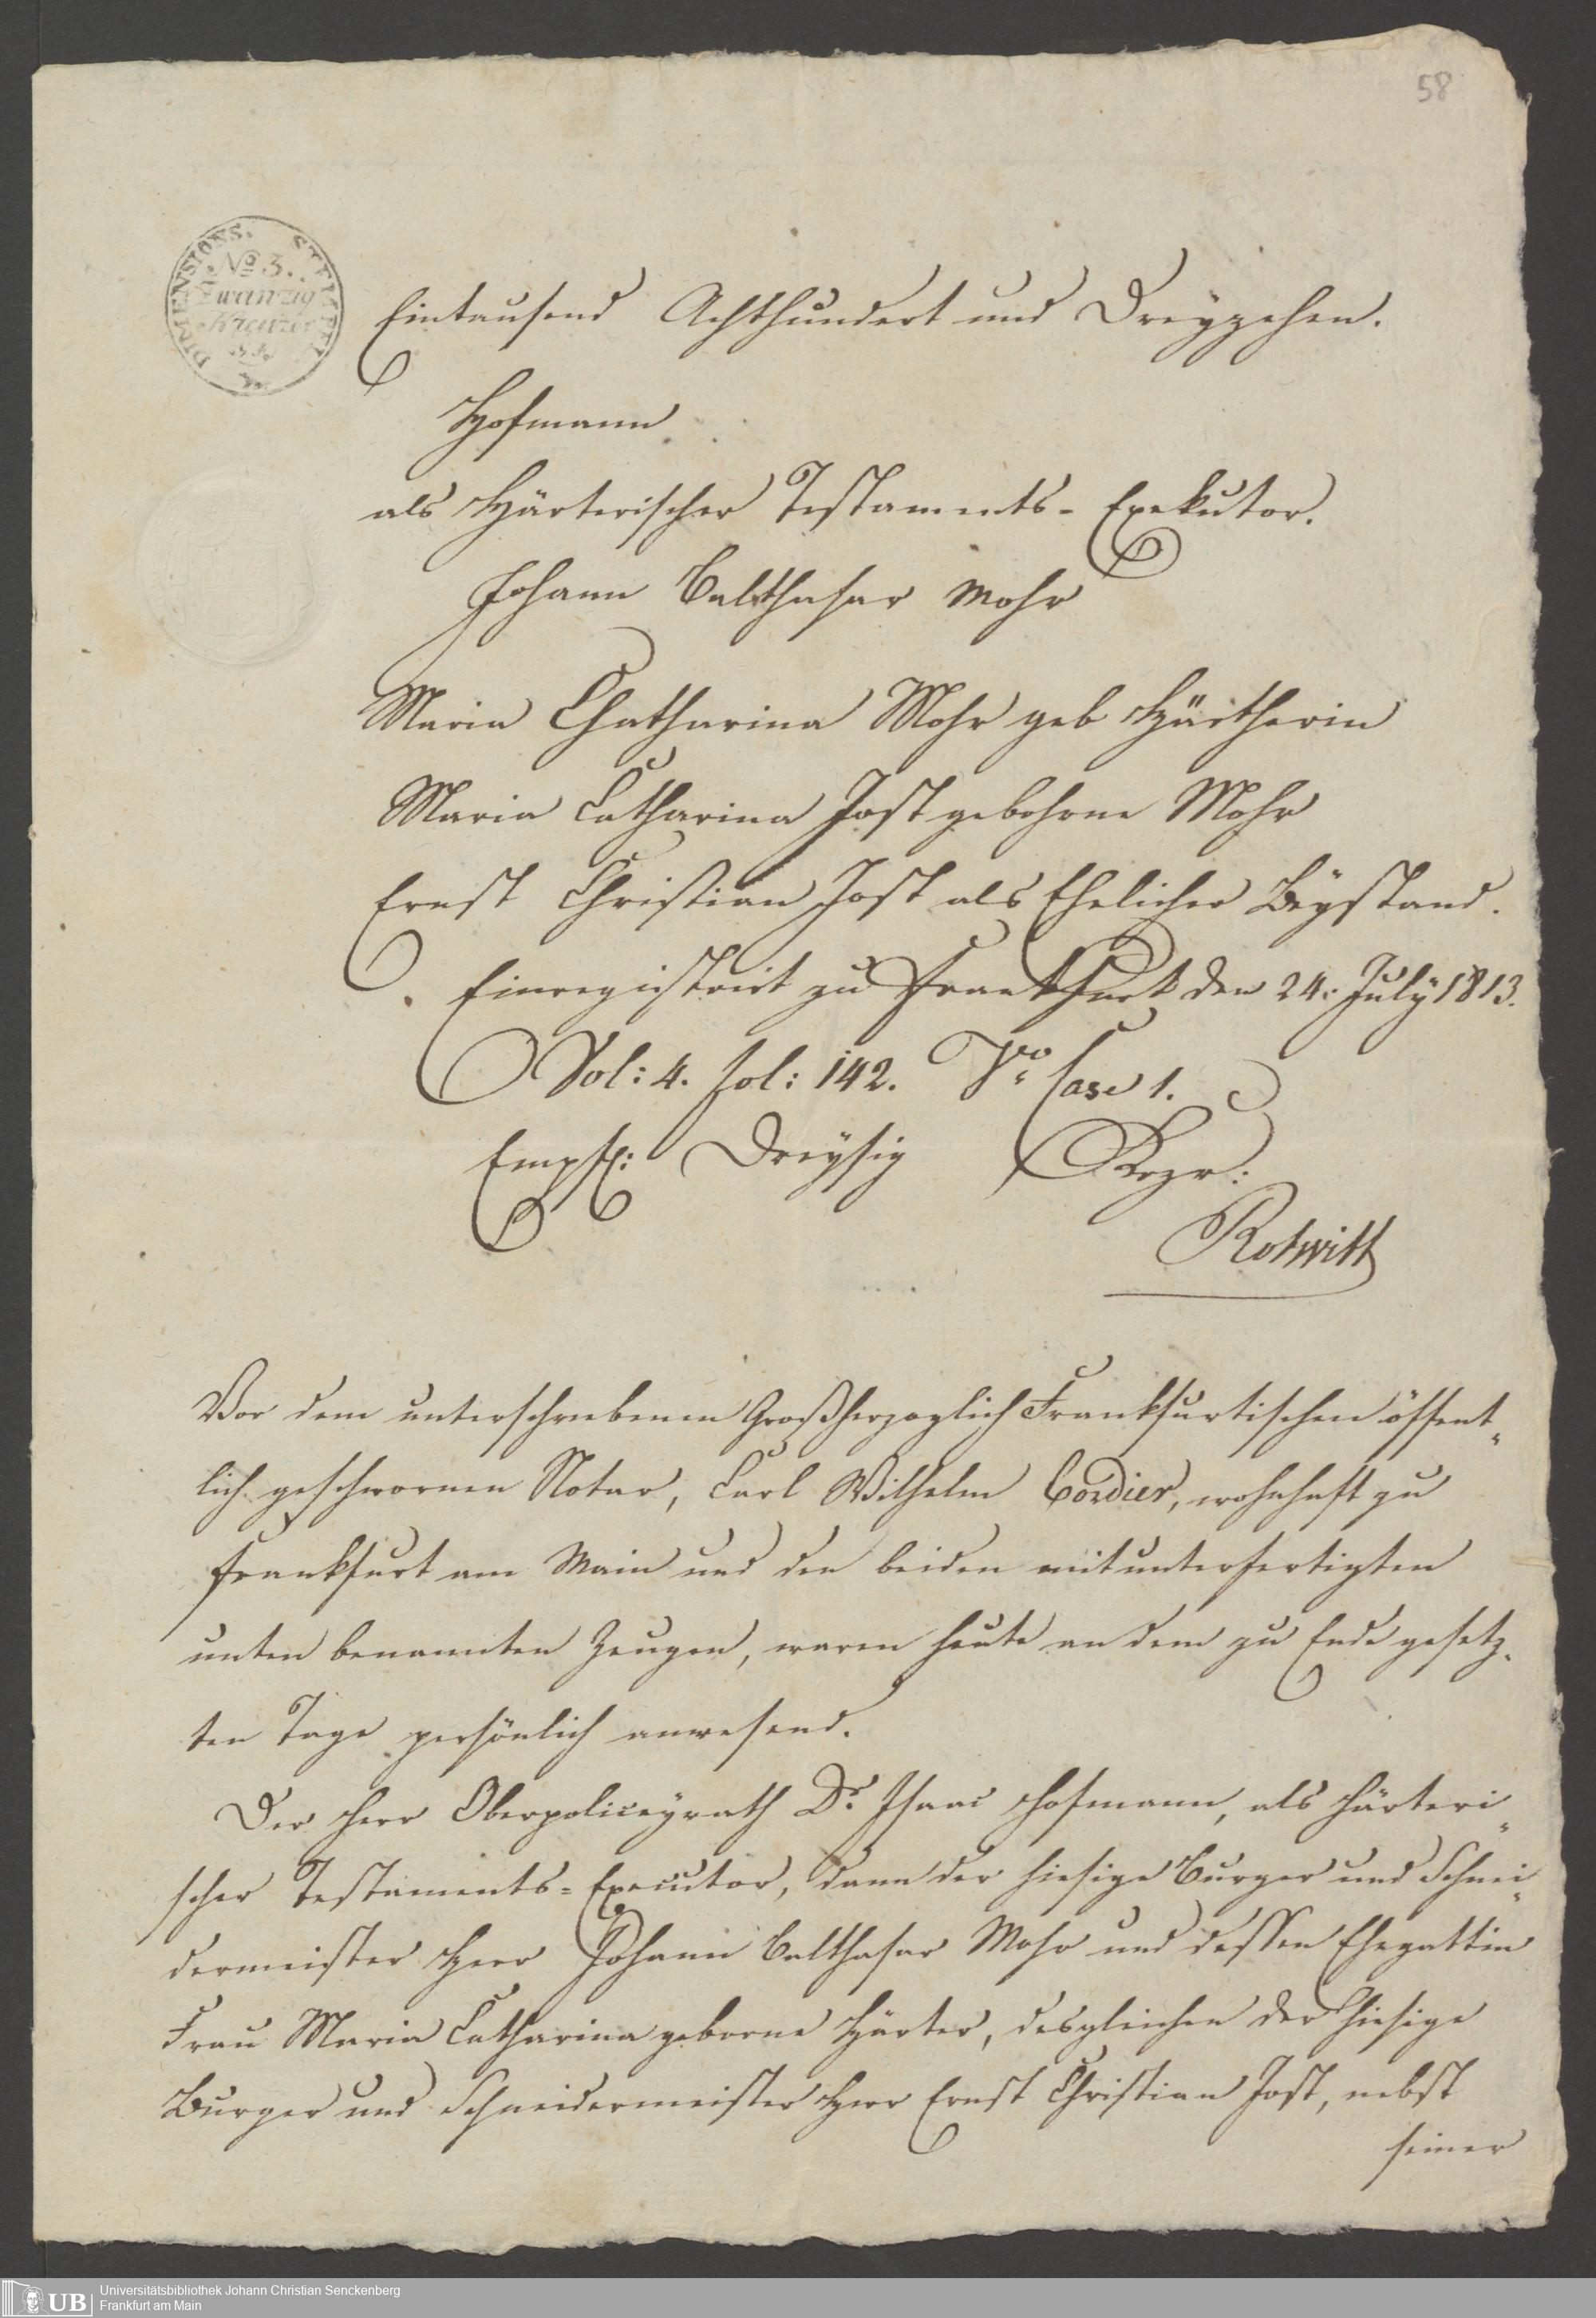 58
DIMENSIONS. STEMPEL
No 3.
Zwanzig
Kreuzer
Eintausend Achthundert und Dreyzehen.
Hofmann
als Härterischer Testaments- Exekutor.
Johann Balthasar Mohr
Maria Chatharina Mohr geb Härtherin
Maria Catharina Jost gebohrne Mohr
Ernst Christian Jost als Ehelicher Beystand.
Einregistrirt zu Frankfurt den 24: July 1813.
Vol: 4. fol: 142. Vo. Case 1.
Empf: Dreysig Krzr:
Rotwitt
Vor dem unterschriebenen Großherzoglich Frankfurtischen öffent-
lich geschwornen Notar, Carl Wilhelm Cordier, wohnhaft zu
Frankfurt am Main und den beiden mitunterfertigten
unten benannten Zeugen, waren heute an dem zu Ende gesetz-
ten Tage persönlich anwesend.
Der Herr Oberpoliceyrath Dr. Isaac Hofmann, als Härteri-
scher Testaments=Executor, dann der hiesige Burger und Schnei-
dermeister Herr Johann Balthasar Mohr und dessen Ehegattin
Frau Maria Catharina geborne Härter, desgleichen der hiesige
Burger und Schneidermeister Herr Ernst Christian Jost, nebst
seiner
UB Universitätsbibliothek Johann Christian Senckenberg
Frankfurt am Main